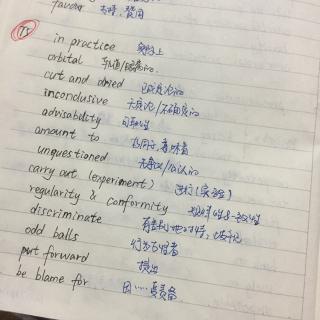 favour 支持,赞同
T5
in practice 实际上
orbital 轨道/眼窝的
cut and dried 已成定论的
inconclusive 无定论/不确定的
advisability 可取性
amount to 等同于,意味着
unquestioned 无争议/公认的
carry out (experiment) 进行(实验)
regularity & conformity 规律性&一致性
discriminate 有差别地对待,歧视
odd balls 行为古怪者
put forward 提出
be blame for 因……受责备